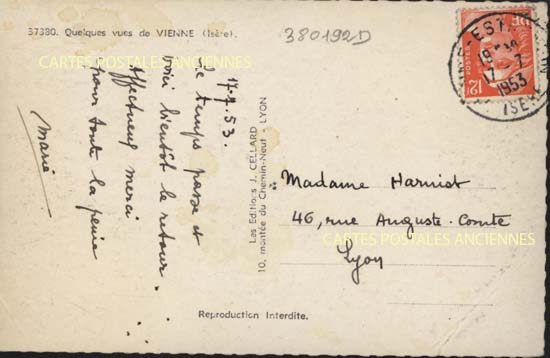 37380. Quelques vues de VIENNE (Isère).
380192D
17.7.53.
Le temps passe et
voici bientôt le retour.
Affectueux merci
pour toute la peine
Marie
Les Editions J. CELLARD
10, montée du Chemin-Neuf - LYON
Madame Harmist
46, rue Auguste-Comte
Lyon
Reproduction Interdite.
POSTES
12F
19
17-7
1953
CARTES POSTALES ANCIENNES
CARTES POSTALES ANCIENNES
CARTES POSTALES ANCIENNES